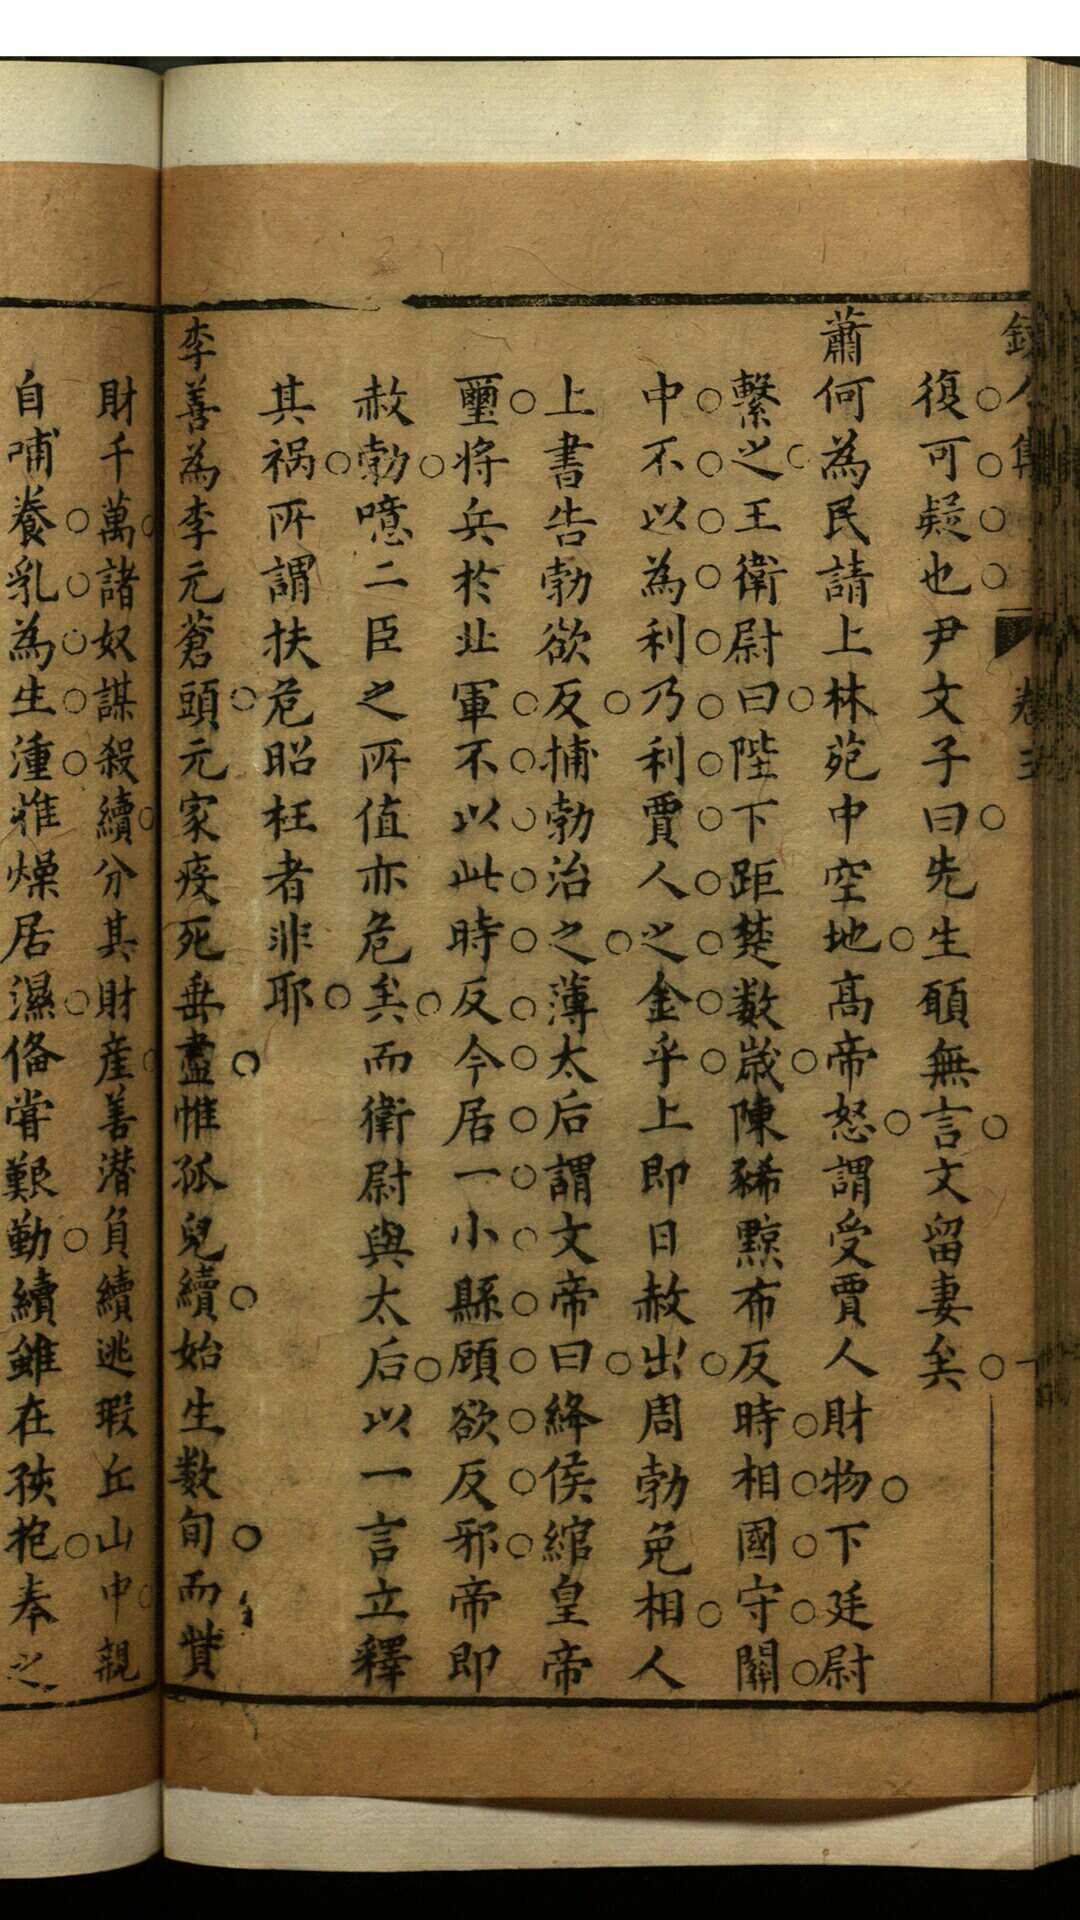 復可疑也尹文子曰先生願無言文留妻矣
蕭何為民請上林苑中空地高帝怒謂受賈人財物下廷尉
繫之王衛尉曰陛下距楚數歲陳豨黥布反時相國守關
中不以為利乃利賈人之金乎上即日赦出周勃免相人
上書告勃欲反捕勃治之薄太后謂文帝曰絳侯綰皇帝
璽將兵於北軍不以此時反今居一小縣顧欲反邪帝即
赦勃噫二臣之所值亦危矣而衛尉與太后以一言立釋
其禍所謂扶危昭枉者非耶
李善為李元蒼頭元家疫死垂盡惟孤兒續始生数旬而貲
財千萬諸奴謀殺續分其財產善潜負續逃瑕丘山中親
自哺養乳為生湩推燥居濕俻嘗艱勤續雖在孩抱奉之